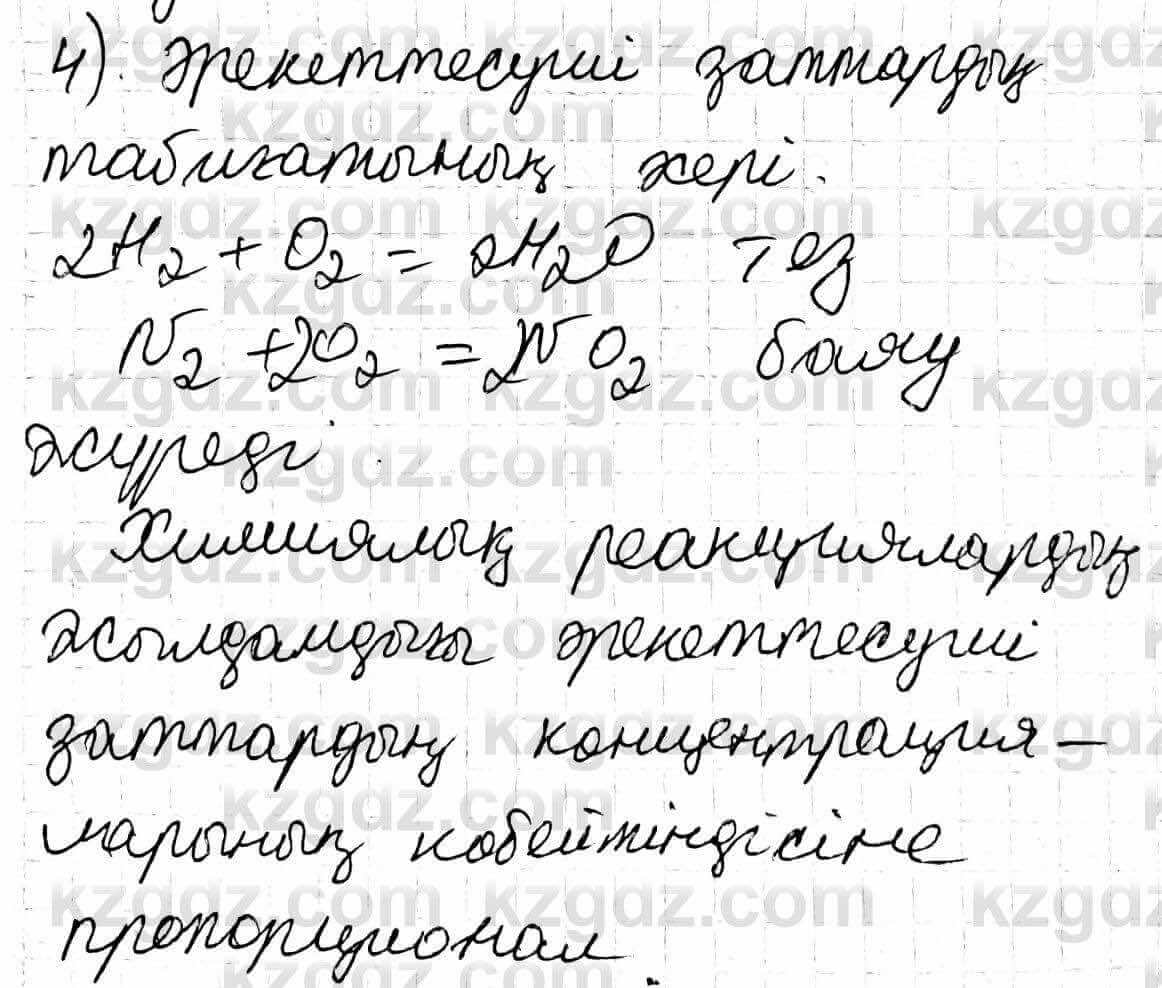 4). Әрекеттесуші заттардың
табиғатының жері.
2H₂ + O₂ = 2H₂O тез
N₂ + 2O₂ = 2NO₂ баяу
жүреді.
Химиялық реакциялардың
жылдамдығы әрекеттесуші
заттардың концентрация–
ларының көбейтіндісіне
пропорционал.